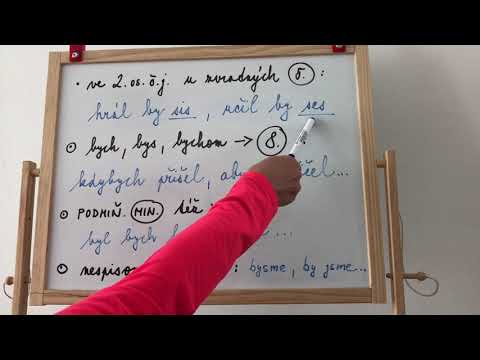 • ve 2. os. č. j. u zvratných č. :
hrál by sis, učil by ses
• bych, bys, bychom → 8. :
kdybych přišel,
• PODMIŇ. MIN. též
byl bych ...
• : bysme, by jsme...